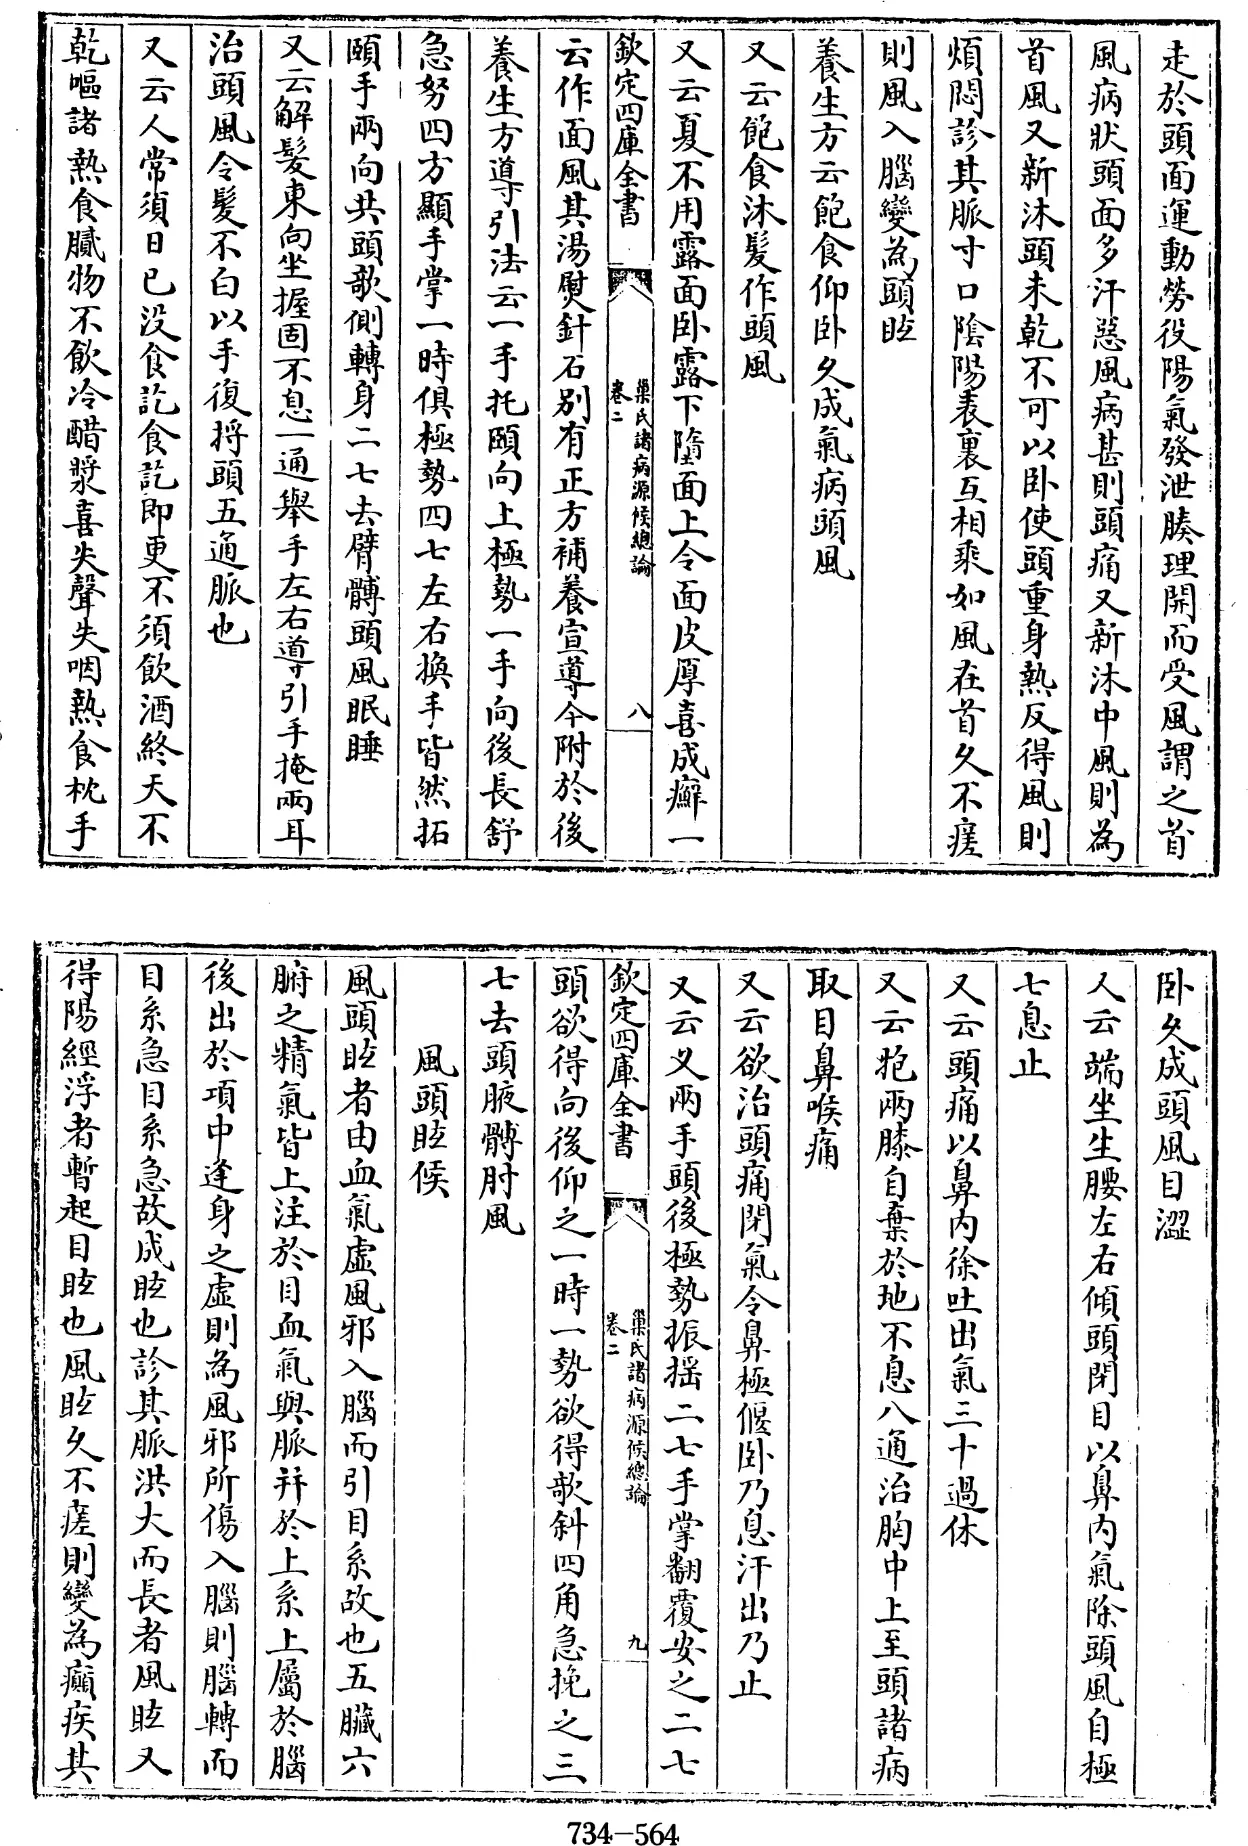 走於頭面運動勞役陽氣發泄腠理開而受風謂之首
風病狀頭面多汗惡風病甚則頭痛又新沐中風則為
首風又新沐頭未乾不可以卧使頭重身熱反得風則
煩悶診其脈寸口陰陽表裏互相乘如風在首久不瘥
則風入腦變為頭眩
養生方云飽食仰卧久成氣病頭風
又云飽食沐髮作頭風
又云夏不用露面卧露下墮面上令面皮厚喜成癬一
欽定四庫全書
巢氏諸病源候總論
卷二
八
云作面風其湯熨針石别有正方補養宣導今附於後
養生方導引法云一手托頤向上極勢一手向後長舒
急努四方顯手掌一時俱極勢四七左右換手皆然拓
頤手兩向共頭欹側轉身二七去臂髆頭風眠睡
又云解髮東向坐握固不息一通舉手左右導引手掩兩耳
治頭風令髮不白以手復捋頭五通脈也
又云人常須日已没食訖食訖即更不須飲酒終天不
乾嘔諸熱食膩物不飲冷醋漿喜失聲失咽熱食枕手
卧久成頭風目澀
又云端坐生腰左右傾頭閉目以鼻内氣除頭風自極
七息止
又云頭痛以鼻内徐吐出氣三十過休
又云抱兩膝自棄於地不息八通治胸中上至頭諸病
取目鼻喉痛
又云欲治頭痛閉氣令鼻極偃卧乃息汗出乃止
又云叉兩手頭後極勢振摇二七手掌翻覆安之二七
欽定四庫全書
巢氏諸病源候總論
卷二
九
頭欲得向後仰之一時一勢欲得欹斜四角急挽之三
七去頭腋髆肘風
風頭眩候
風頭眩者由血氣虛風邪入腦而引目系故也五臟六
腑之精氣皆上注於目血氣與脈并於上系上屬於腦
後出於項中逢身之虛則為風邪所傷入腦則腦轉而
目系急目系急故成眩也診其脈洪大而長者風眩又
得陽經浮者暫起目眩也風眩久不瘥則變為癲疾其
734-564